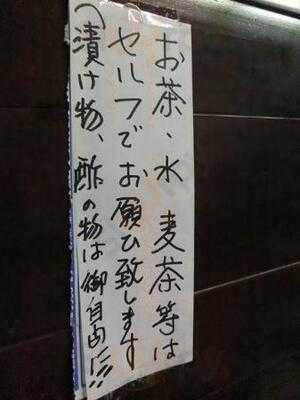 お茶、水 麦茶等は
セルフでお願ひ致します
(漬け物、酢の物は御自由に!!